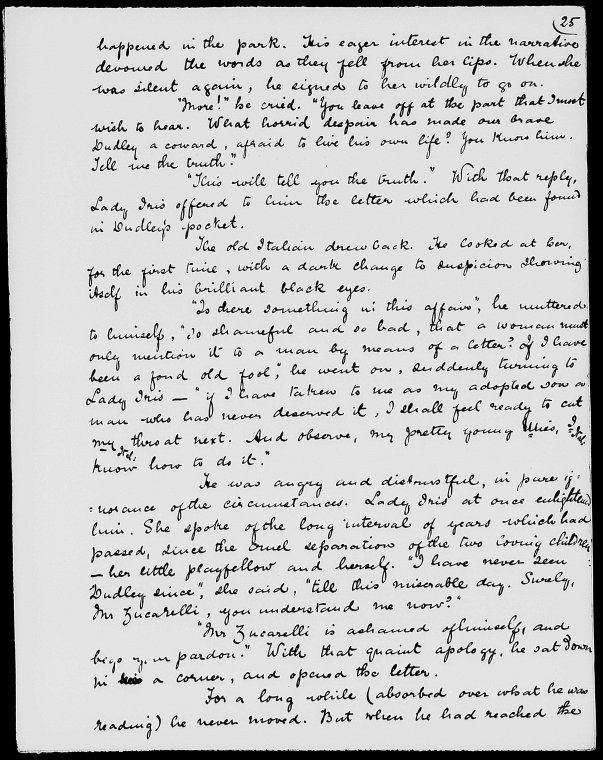 25
happened in the park. His eager interest in the narrative
devoured the words as they fell from her lips. When she
was silent again, he signed to her wildly to go on.
"More!" he cried. "You leave off at the part that I most
wish to hear. What horrid despair has made our brave
Dudley a coward, afraid to live his own life? You know him.
Tell me the truth."
"This will tell you the truth." With that reply,
Lady Iris offered to him the letter which had been found
in Dudley's pocket.
The old Italian drew back. He looked at her,
for the first time, with a dark change to suspicion showing
itself in his brilliant black eyes.
"Is there something in this affair", he muttered
to himself, "so shameful and so bad, that a woman must
only mention it to a man by means of a letter? If I have
been a fond old fool," he went on, suddenly turning to
Lady Iris — "if I have taken to me as my adopted son a
man who has never deserved it, I shall feel ready to cut
my throat next. And observe, my pretty young Miss, I
know how to do it."
He was angry and distrustful, in pure ig-
:norance of the circumstances. Lady Iris at once enlightened
him. She spoke of the long interval of years which had
passed, since the cruel separation of the two loving children
— her little playfellow and herself. "I have never seen
Dudley since", she said, "till this miserable day. Surely,
Mr Zucarelli, you understand me now?"
"Mr Zucarelli is ashamed of himself, and
begs your pardon." With that quaint apology, he sat down
in a corner, and opened the letter.
For a long while (absorbed over what he was
reading) he never moved. But when he had reached the